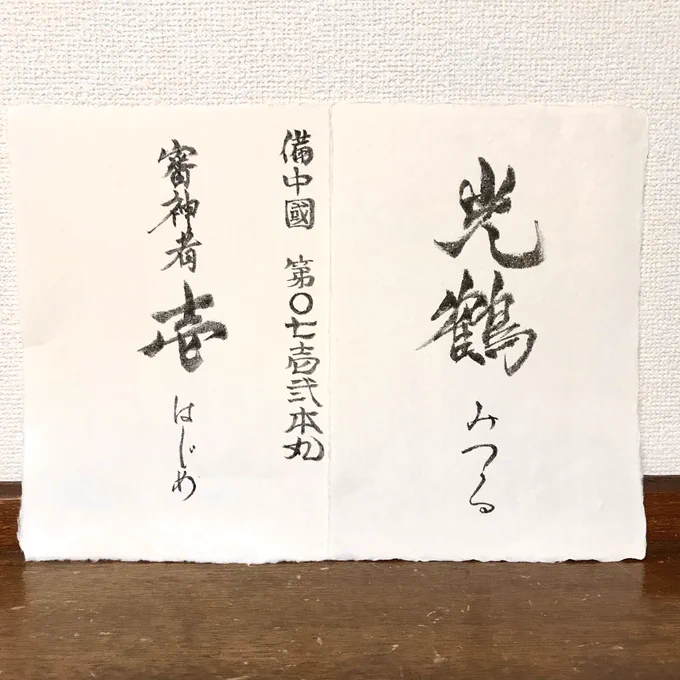 光鶴
みつる
備中國 第〇七壱弐本丸
審神者 壱 はじめ